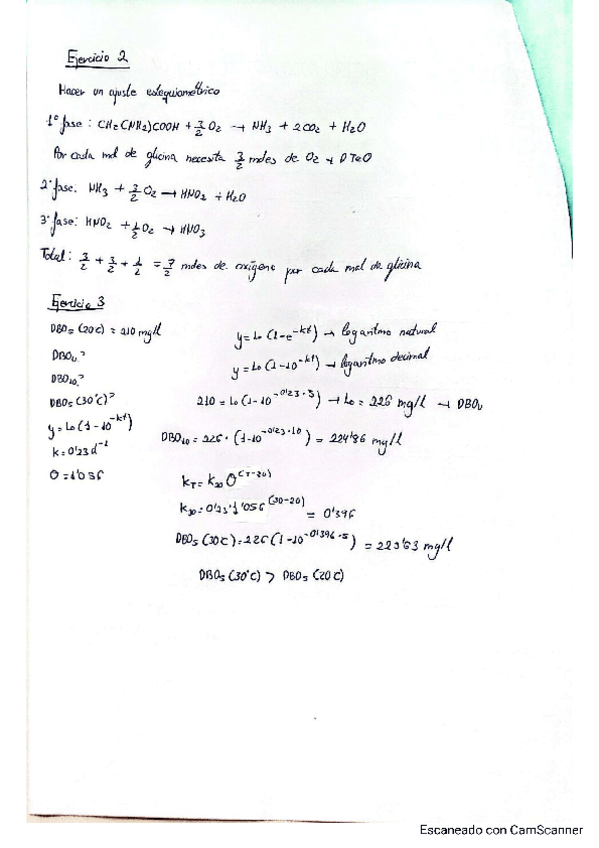 Ejercicio 2
Hacer un ajuste estequiométrico
1ª fase: CH₂(NH₂)COOH + 3/2 O₂ → NH₃ + 2CO₂ + H₂O
Por cada mol de glicina necesita 3/2 moles de O₂ → DTeO
2ª fase: NH₃ + 3/2 O₂ → HNO₂ + H₂O
3ª fase: HNO₂ + 1/2 O₂ → HNO₃
Total: 3/2 + 3/2 + 1/2 = 7/2 moles de oxígeno por cada mol de glicina
Ejercicio 3
DBO₅ (20ºC) = 210 mg/l
DBOᵤ?
DBO₁₀?
DBO₅ (30ºC)?
y = Lo (1-10^-kt)
k = 0'23 d^-1
Θ = 1'056
y = Lo (1-e^-kt) → logaritmo natural
y = Lo (1-10^-kt) → logaritmo decimal
210 = Lo (1-10^-0'23·5) → Lo = 226 mg/l → DBOᵤ
DBO₁₀ = 226 · (1-10^-0'23·10) = 224'86 mg/l
K_T = K₂₀ Θ^(T-20)
K₃₀ = 0'23·1'056^(30-20) = 0'396
DBO₅ (30ºC) = 226 (1-10^-0'396·5) = 223'63 mg/l
DBO₅ (30ºC) > DBO₅ (20ºC)
Escaneado con CamScanner